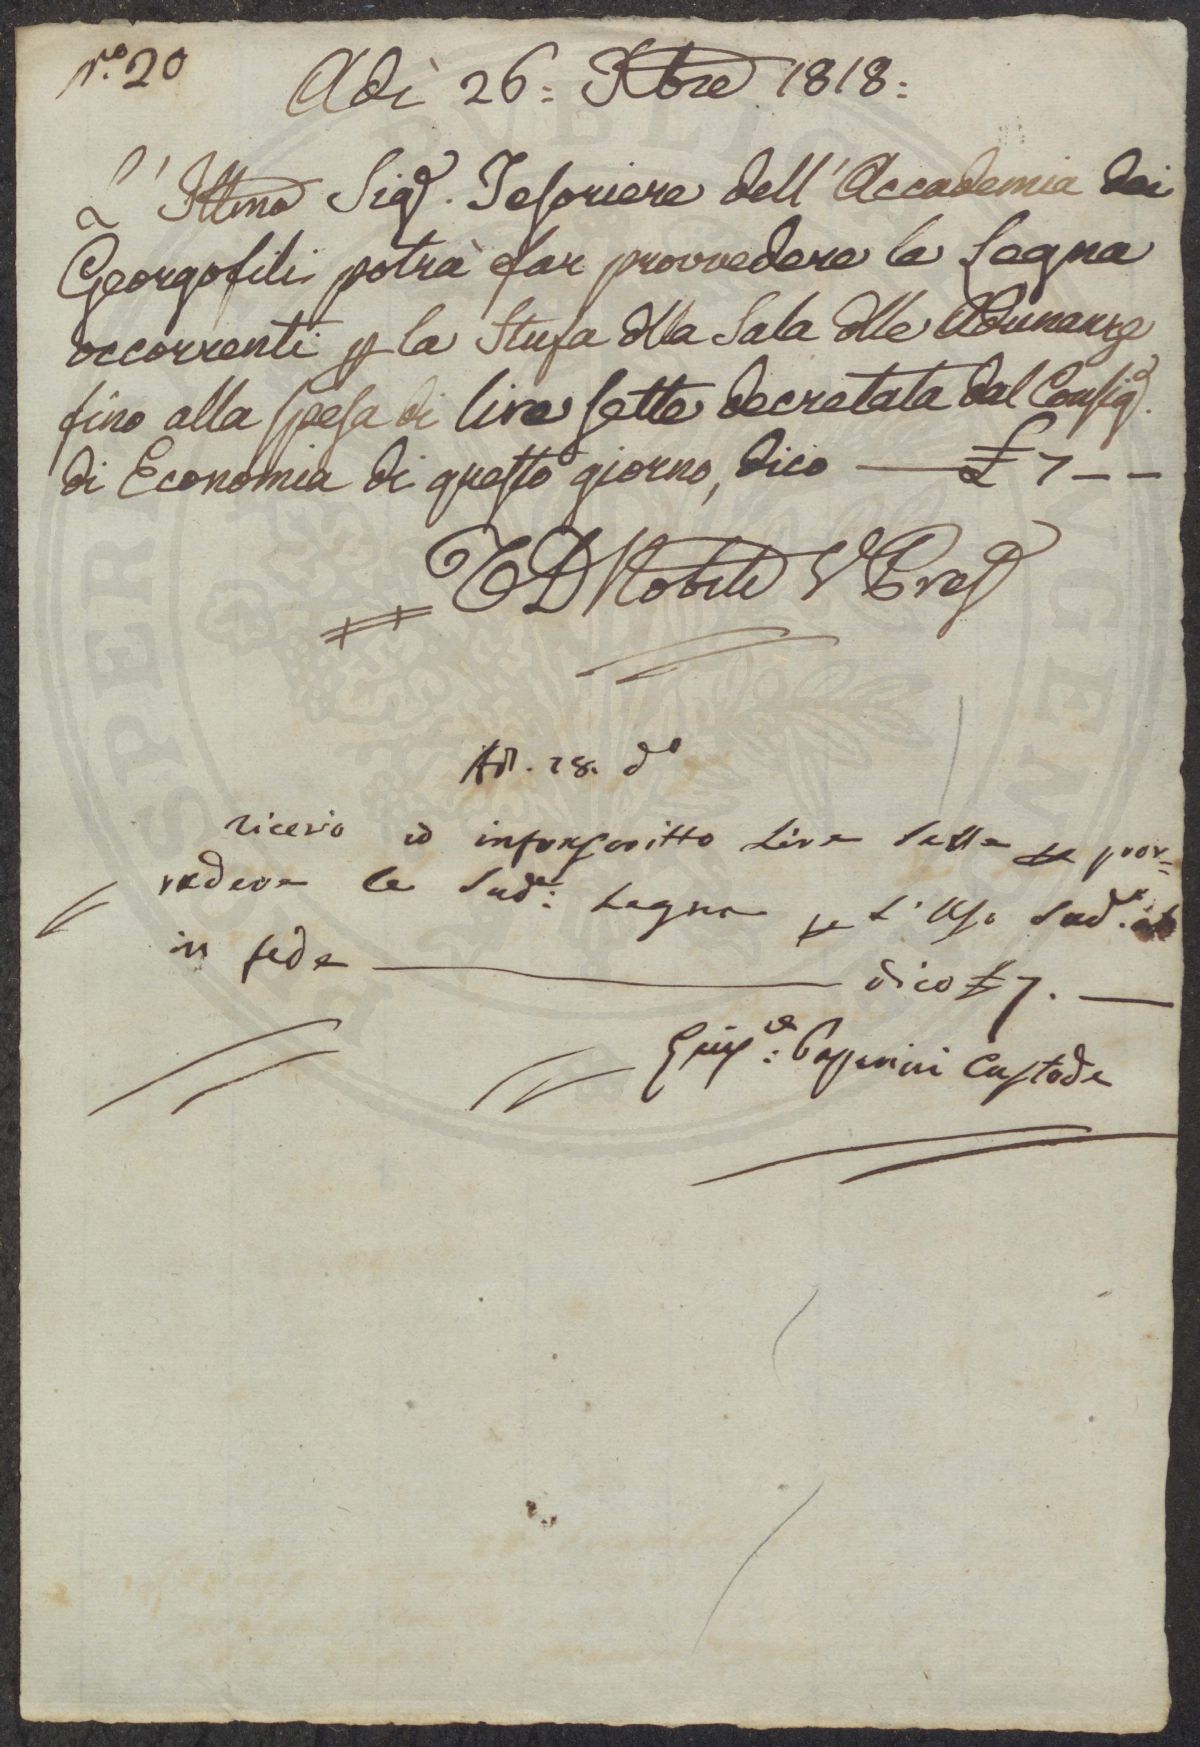 N.º 20
Adì 26: Xbre 1818:
L'Illmo Sigr. Tesoriere dell'Accademia dei
Georgofili potrà far provvedere le Legna
occorrenti p la Stufa dlla Sala dlle Adunanze
fino alla spesa di lire sette decretata dal Consigº.
di Economia di questo giorno, dico — £ 7 — —
T D Nobili V Presº
Adì. 28. dº
Ricevo io infrascritto Lire Sette p prov=
vedere le Sude: Legna p L'Uso Sudº.
in fede — dico £ 7. —
Giuse: Passerini Custode